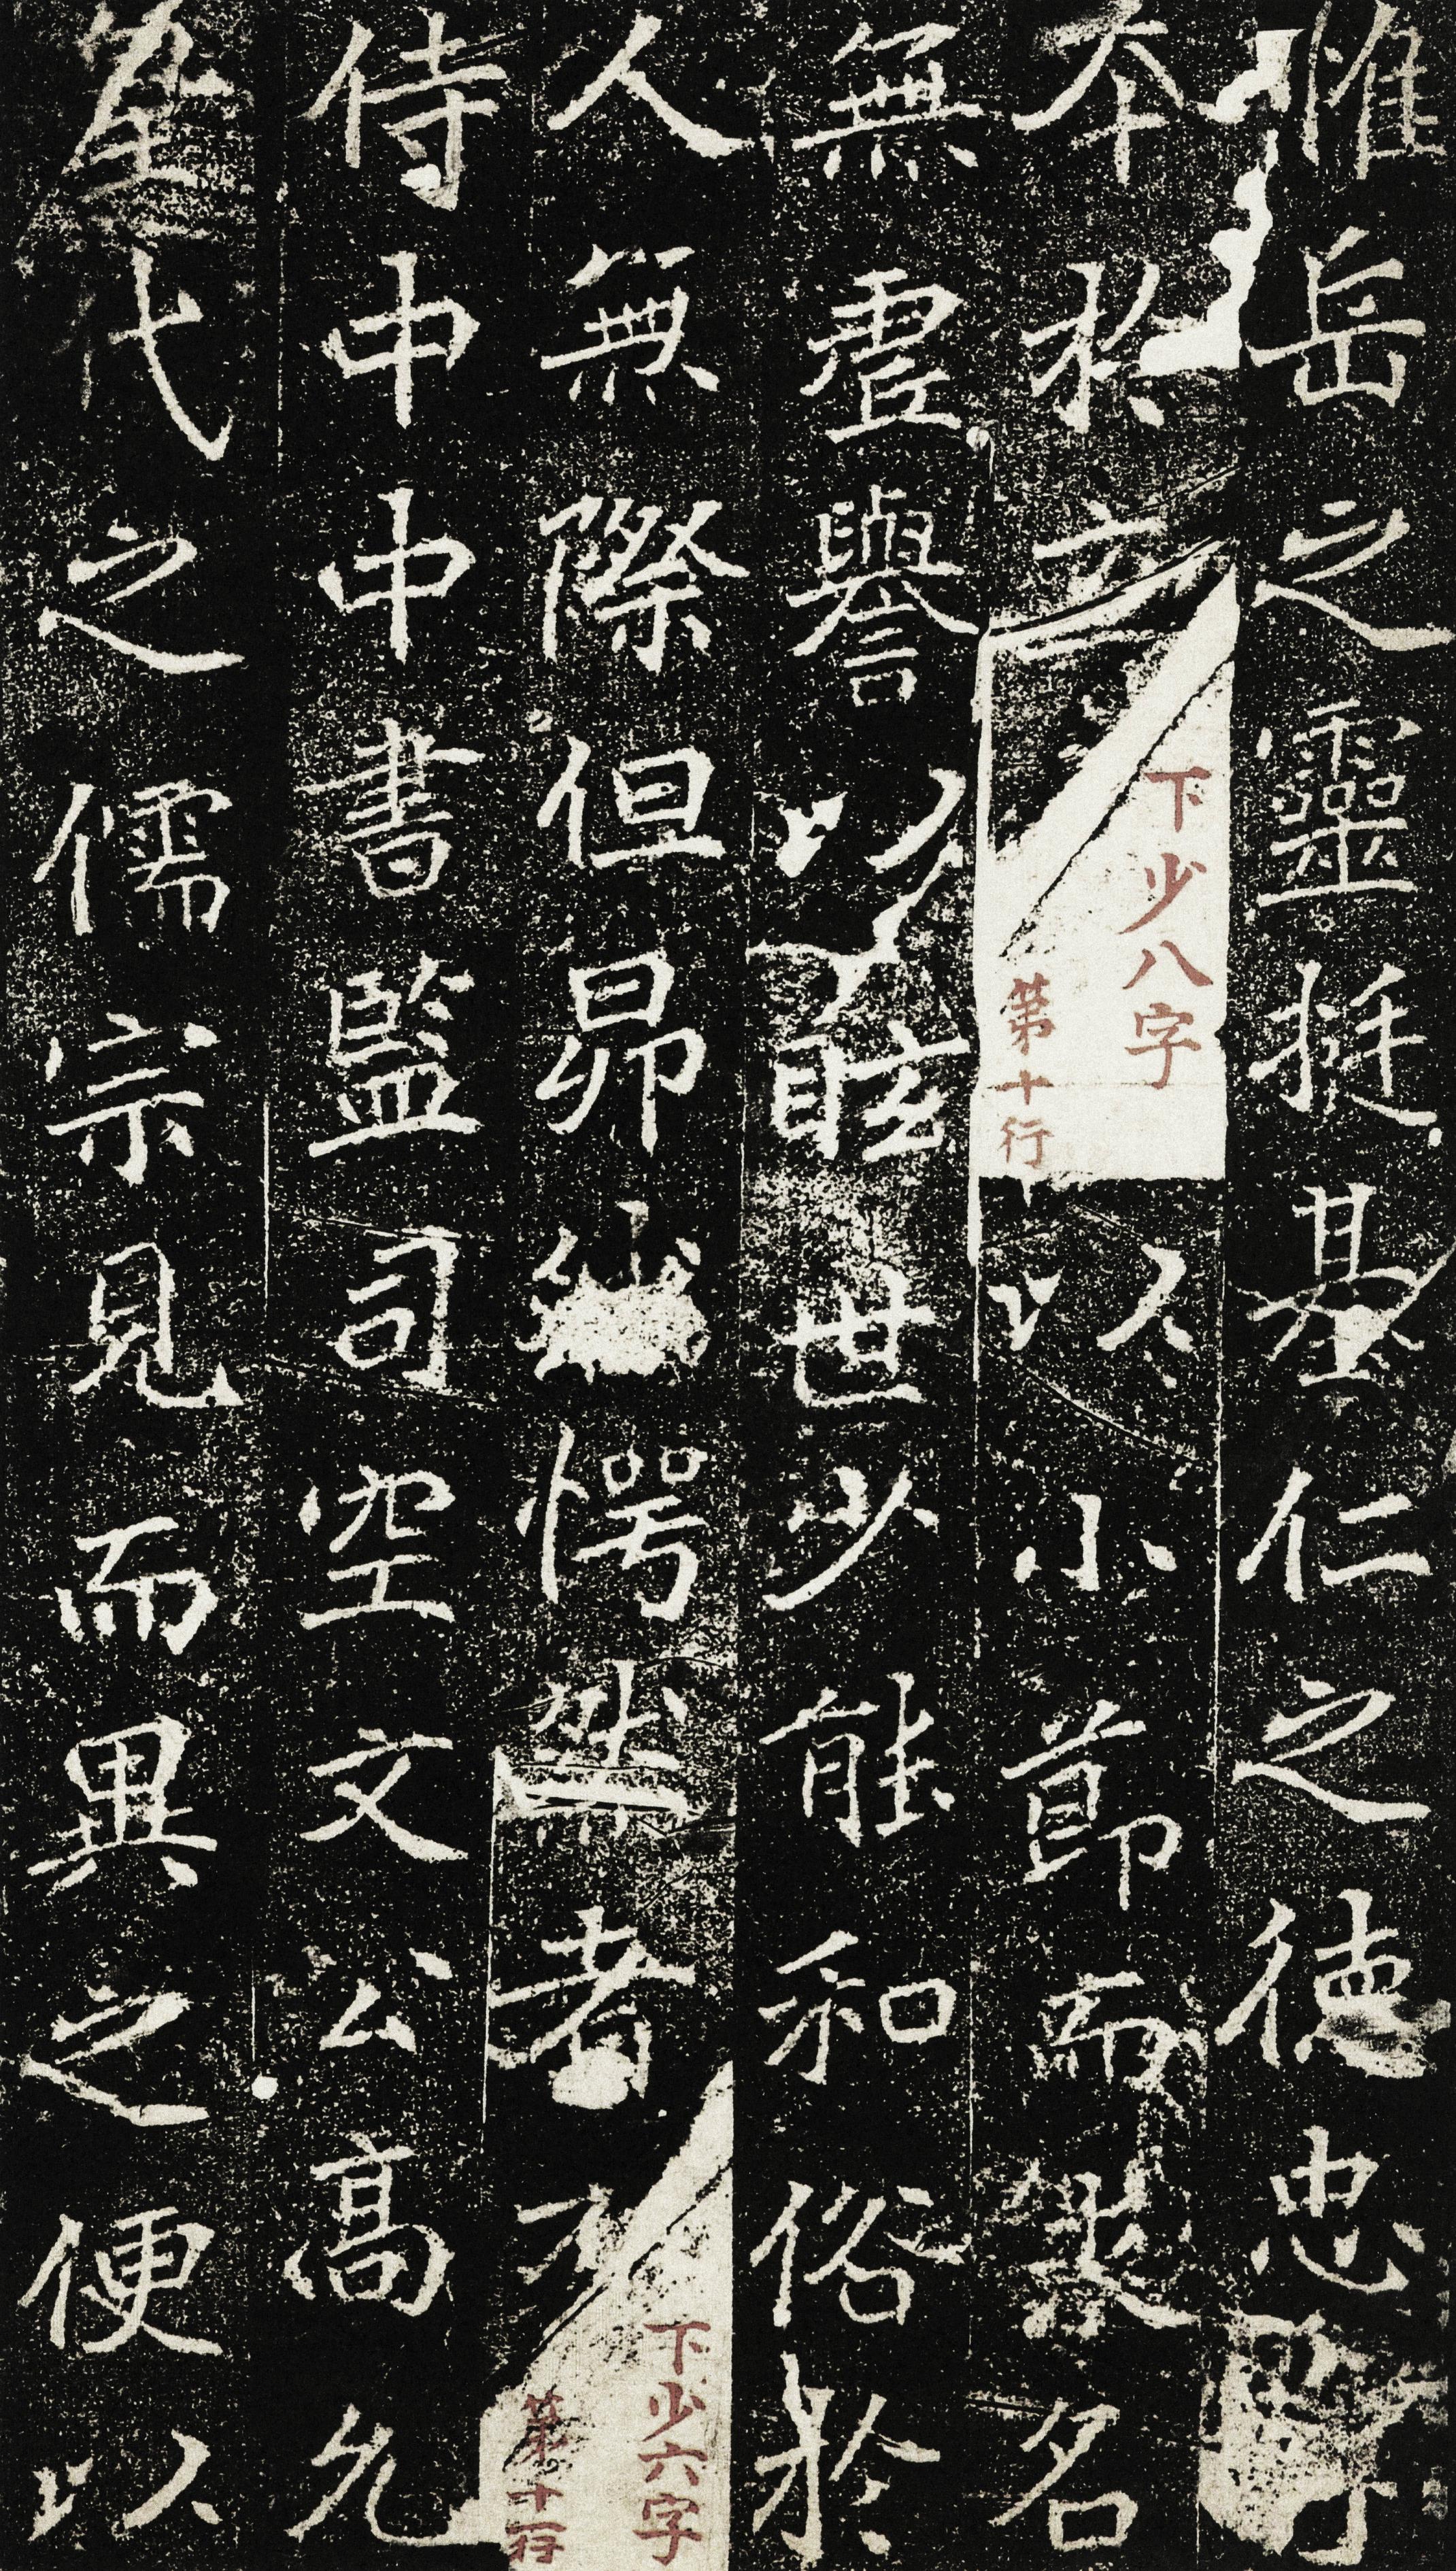 惟岳之靈挺基仁之德忠
本於立
下少八字
第十行
以小節而求名
無虛譽以眩世少能和俗於
人無際但昂
愕
者
下少六字
第十一行
侍中中書監司空文公高允
代之儒宗見而異之便以